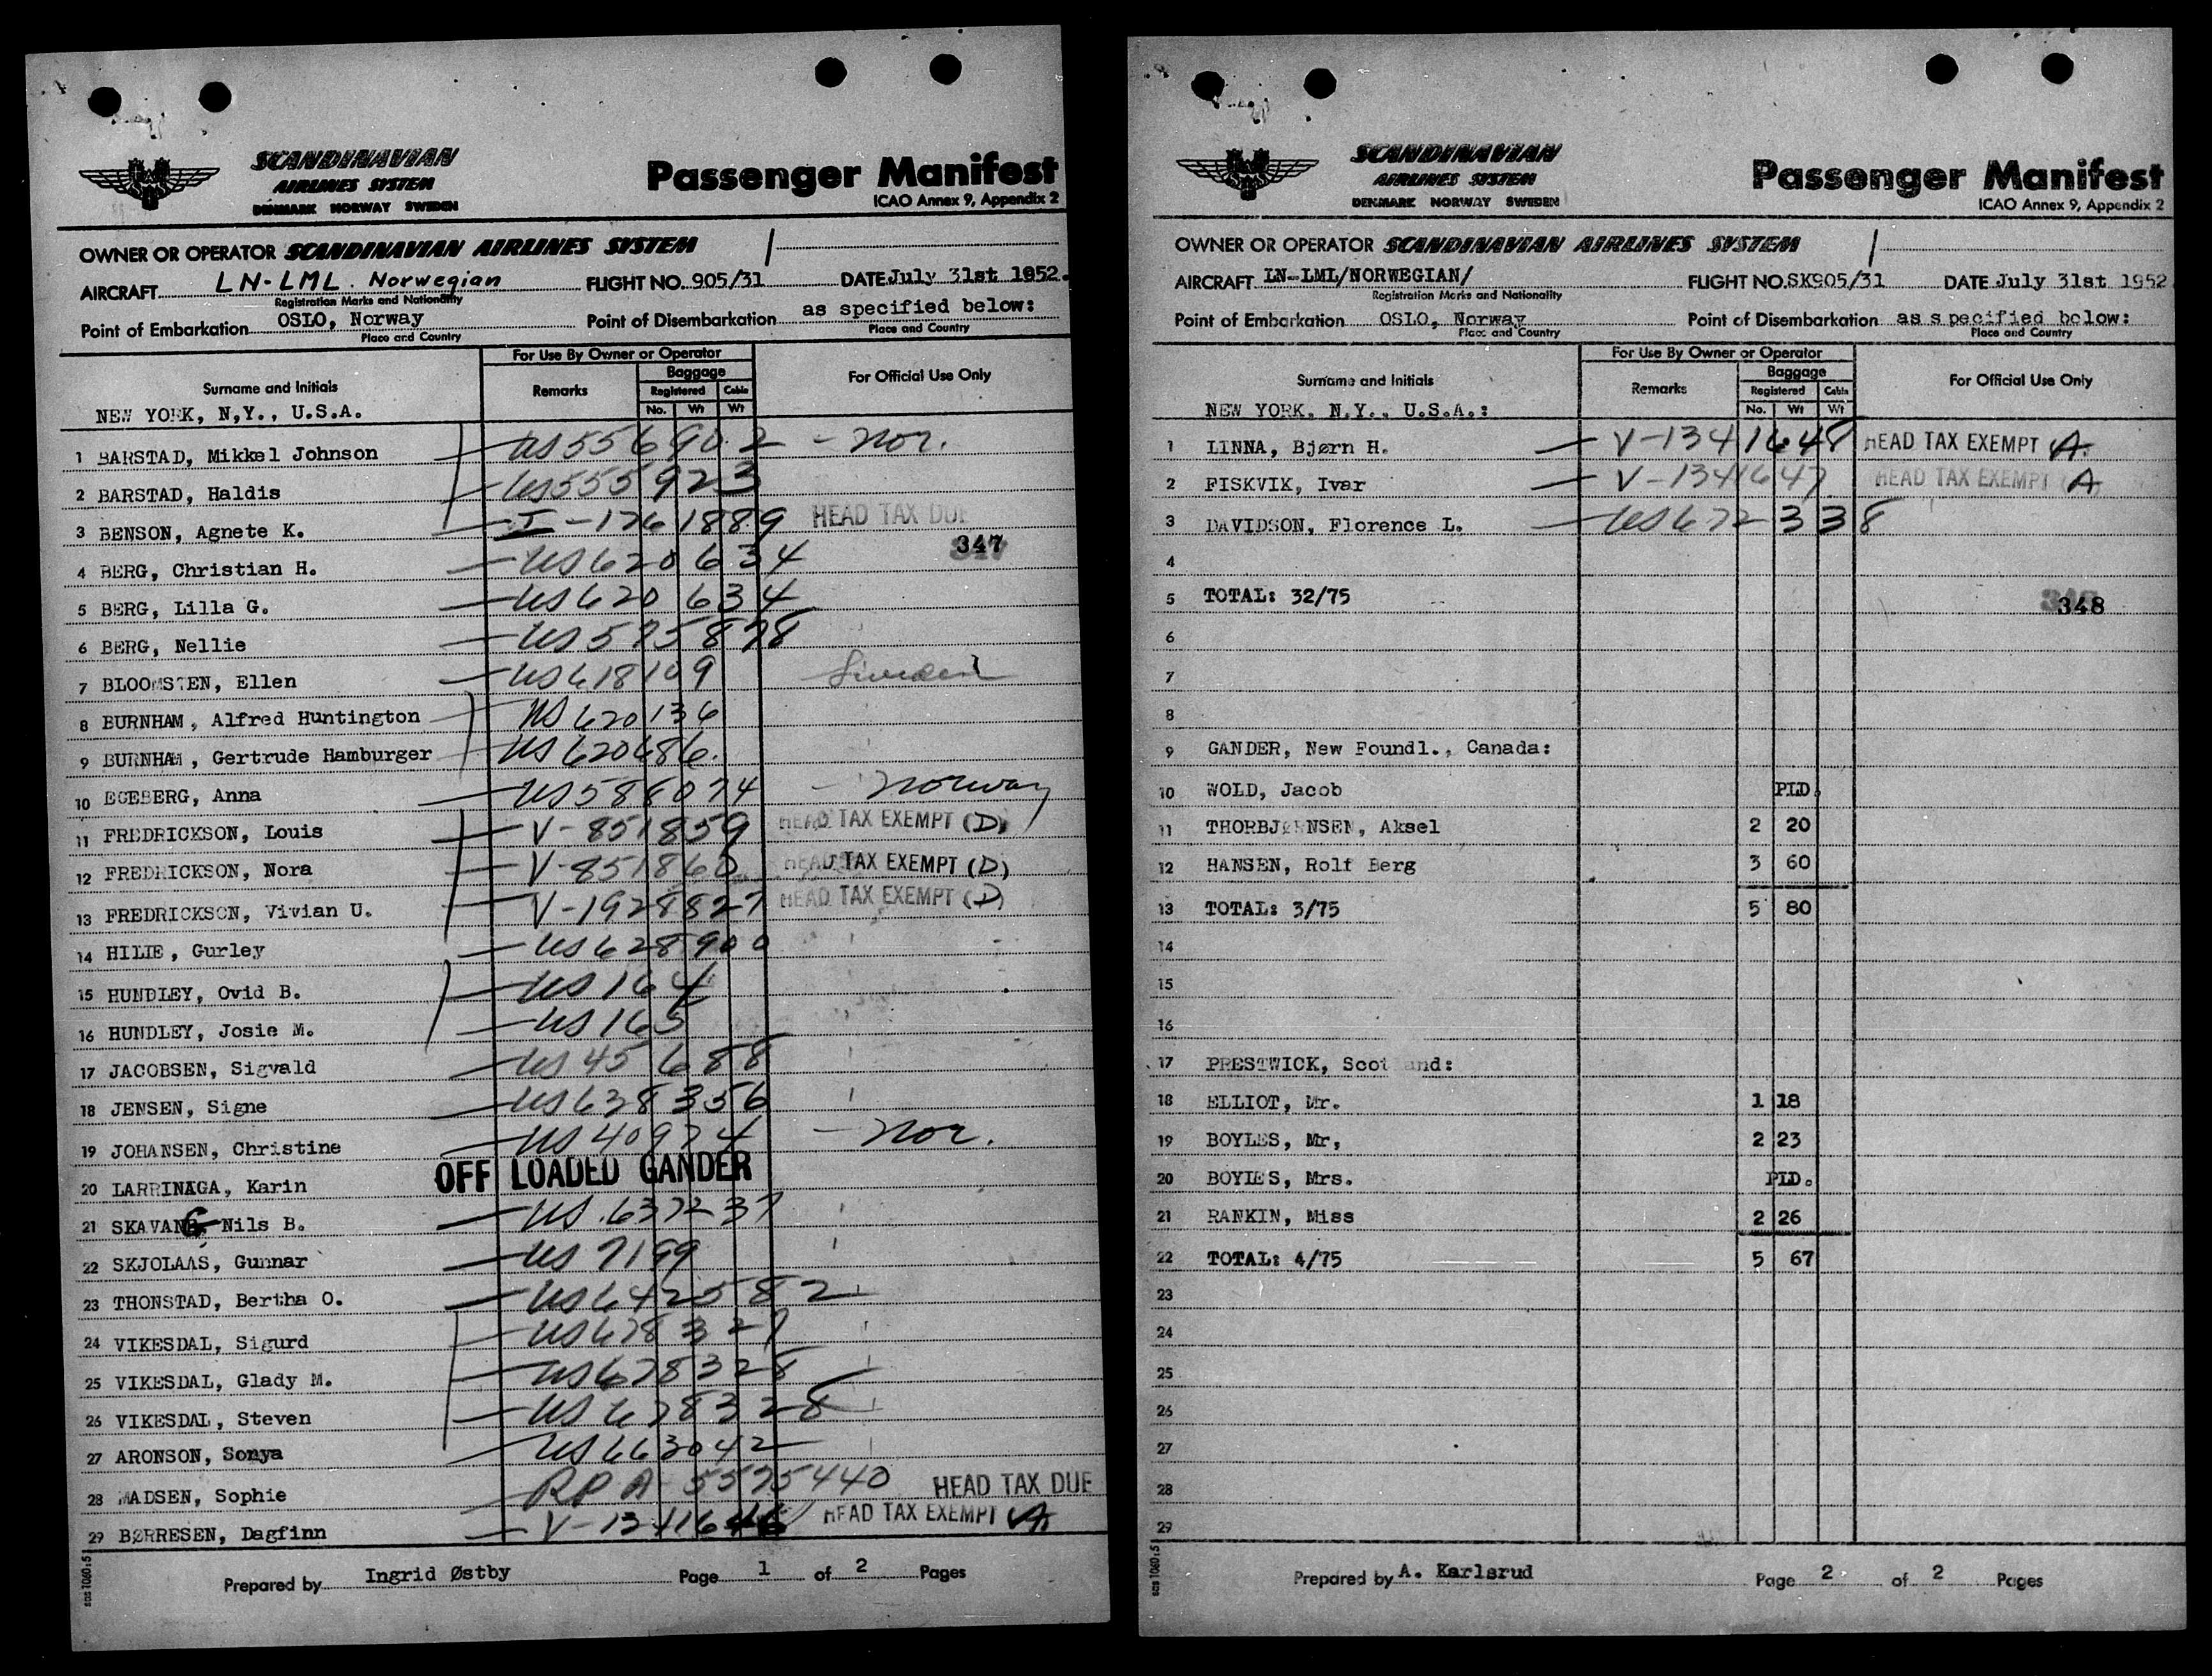 SCANDINAVIAN
AIRLINES SYSTEM
DENMARK NORWAY SWEDEN
Passenger Manifest
ICAO Annex 9, Appendix 2
OWNER OR OPERATOR SCANDINAVIAN AIRLINES SYSTEM
AIRCRAFT LN-LML. Norwegian FLIGHT NO. 905/31 DATE July 31st 1952.
Registration Marks and Nationality
Point of Embarkation OSLO, Norway Point of Disembarkation as specified below:
Place and Country Place and Country
For Use By Owner or Operator
Baggage
Surname and Initials Remarks Registered Cabin For Official Use Only
No. Wt Wt
NEW YORK, N,Y., U.S.A.
1 BARSTAD, Mikkel Johnson US556902 - Nor.
2 BARSTAD, Haldis US555923
3 BENSON, Agnete K. I-1761889 HEAD TAX DUE
347
4 BERG, Christian H. US620634
5 BERG, Lilla G. US620634
6 BERG, Nellie US575878
7 BLOOMSTEN, Ellen US618109 Sweden
8 BURNHAM, Alfred Huntington US620136
9 BURNHAM, Gertrude Hamburger US620686.
10 EGEBERG, Anna US586074 - Norway
11 FREDRICKSON, Louis V-851859 HEAD TAX EXEMPT (D)
12 FREDRICKSON, Nora V-851860 HEAD TAX EXEMPT (D)
13 FREDRICKSON, Vivian U. V-1928827 HEAD TAX EXEMPT (D)
14 HILIE, Gurley US628900
15 HUNDLEY, Ovid B. US164
16 HUNDLEY, Josie M. US165
17 JACOBSEN, Sigvald US45688
18 JENSEN, Signe US638356
19 JOHANSEN, Christine US40974 - Nor.
20 LARRINAGA, Karin OFF LOADED GANDER
21 SKAVANG Nils B. US.637237
22 SKJOLAAS, Gunnar US7199
23 THONSTAD, Bertha O. US642582
24 VIKESDAL, Sigurd US678327
25 VIKESDAL, Glady M. US678328
26 VIKESDAL, Steven US678328
27 ARONSON, Sonya US663042
28 MADSEN, Sophie RP A-5575440 HEAD TAX DUE
29 BØRRESEN, Dagfinn V-1341646 HEAD TAX EXEMPT A
Prepared by Ingrid Østby Page 1 of 2 Pages
sas 1080:5
SCANDINAVIAN
AIRLINES SYSTEM
DENMARK NORWAY SWEDEN
Passenger Manifest
ICAO Annex 9, Appendix 2
OWNER OR OPERATOR SCANDINAVIAN AIRLINES SYSTEM
AIRCRAFT LN-LML/NORWEGIAN/ FLIGHT NO. SK905/31 DATE July 31st 1952
Registration Marks and Nationality
Point of Embarkation OSLO, Norway Point of Disembarkation as specified below:
Place and Country Place and Country
For Use By Owner or Operator
Baggage
Surname and Initials Remarks Registered Cabin For Official Use Only
No. Wt Wt
NEW YORK, N.Y., U.S.A.:
1 LINNA, Bjørn H. V-1341648 HEAD TAX EXEMPT A
2 FISKVIK, Ivar V-1341647 HEAD TAX EXEMPT A
3 DAVIDSON, Florence L. US672338
4
5 TOTAL: 32/75 348
6
7
8
9 GANDER, New Foundl., Canada:
10 WOLD, Jacob PLD.
11 THORBJØRNSEN, Aksel 2 20
12 HANSEN, Rolf Berg 3 60
13 TOTAL: 3/75 5 80
14
15
16
17 PRESTWICK, Scotland:
18 ELLIOT, Mr. 1 18
19 BOYLES, Mr, 2 23
20 BOYLES, Mrs. PLD.
21 RANKIN, Miss 2 26
22 TOTAL: 4/75 5 67
23
24
25
26
27
28
29
Prepared by A. Karlsrud Page 2 of 2 Pages
sas 1080:5